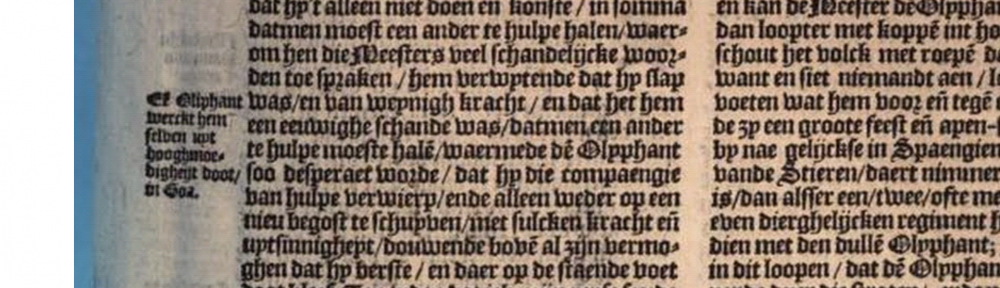 dat hy't alleen niet doen en konste / in somma
datmen moest een ander te hulpe halen/waer-
om hen die Meesters veel schandelijcke woor-
den toe spraken / hem verwytende dat hy slap
was/en van weynigh kracht / en dat het hem
een eeuwighe schande was/datmen een ander
te hulpe moeste halē/waermede dē Olyphant
soo desperaet worde / dat hy die compaengie
van hulpe verwierp/ende alleen weder op een
nieu begost te schuyven/met sulcken kracht eñ
uytsinnigheyt/douwende bovē al zijn vermo-
ghen dat hy berste / en daer op de staende voet
Olyphant
werckt hem
selven uyt
hooghmoe-
digheyt doot/
in Goa.
en kan de Meester de Olypha
dan loopter met koppē int ho
schout het volck met roepē d
want en siet niemandt aen / 
voeten wat hem voor eñ tegē
de zy een groote feest eñ apen-
by nae gelijckse in Spaengien
vande Stieren/daert nimmer
is/dan alsser een/twee/ofte me
even dierghelijcken regiment h
dien met den dullē Olyphant;
in dit loopen / dat dē Olyphan